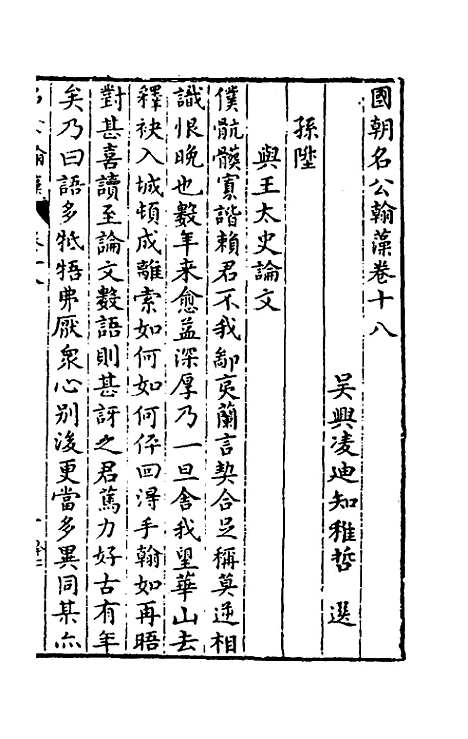 國朝名公翰藻卷十八
吴興凌迪知稚哲 選
孫陞
與王太史論文
僕骯髒寡諧賴君不我鄙夷蘭言契合足稱莫逆相
識恨晚也數年来愈益深厚乃一旦舍我望華山去
釋袂入城頓成離索如何如何伻回淂手翰如再晤
對甚喜讀至論文數語則甚訝之君篤力好古有年
矣乃曰語多牴牾弗厭衆心别後更當多異同某亦